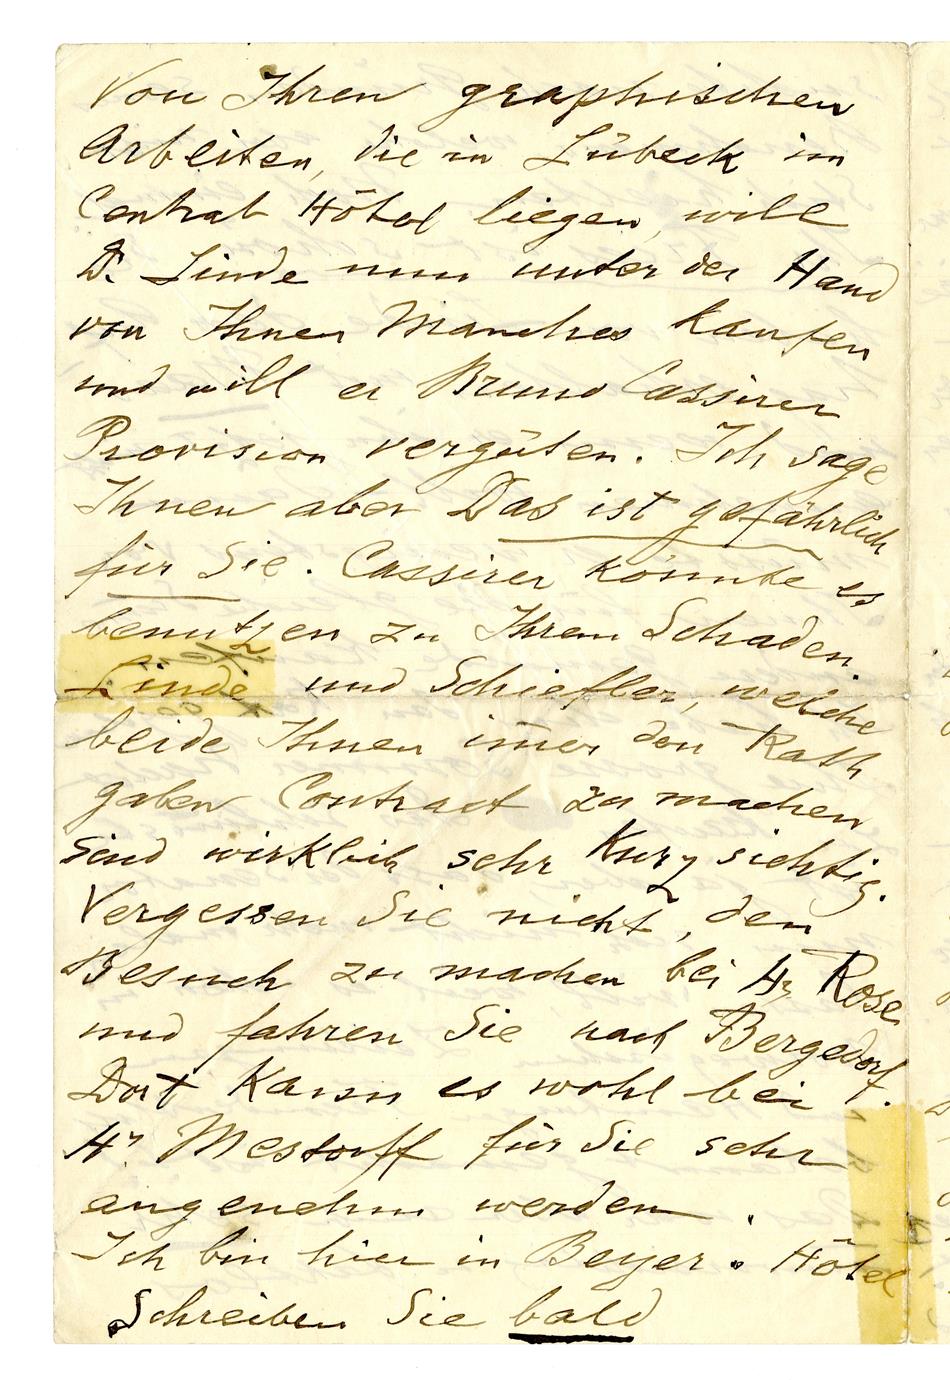 Von Ihren graphischen
Arbeiten, die in Lübeck im
Central Hôtel liegen, will
Dr. Linde nun unter der Hand
von Ihnen Manches kaufen
und will er Bruno Cassirer
Provision vergüten. Ich sage
Ihnen aber Das ist gefährlich
für Sie. Cassirer könnte es
benutzen zu Ihrem Schaden
Linde und Schiefler, welche
beide Ihnen im̄er den Rath
gaben Contract zu machen
sind wirklich sehr Kurzsichtig.
Vergessen Sie nicht, den
Besuch zu machen bei Hr Rose
und fahren Sie nach Bergedorf.
Dort Kann es wohl bei
Hr Mestorff für Sie sehr
angenehm werden.
Ich bin hier in Beyer's Hôtel
Schreiben Sie bald